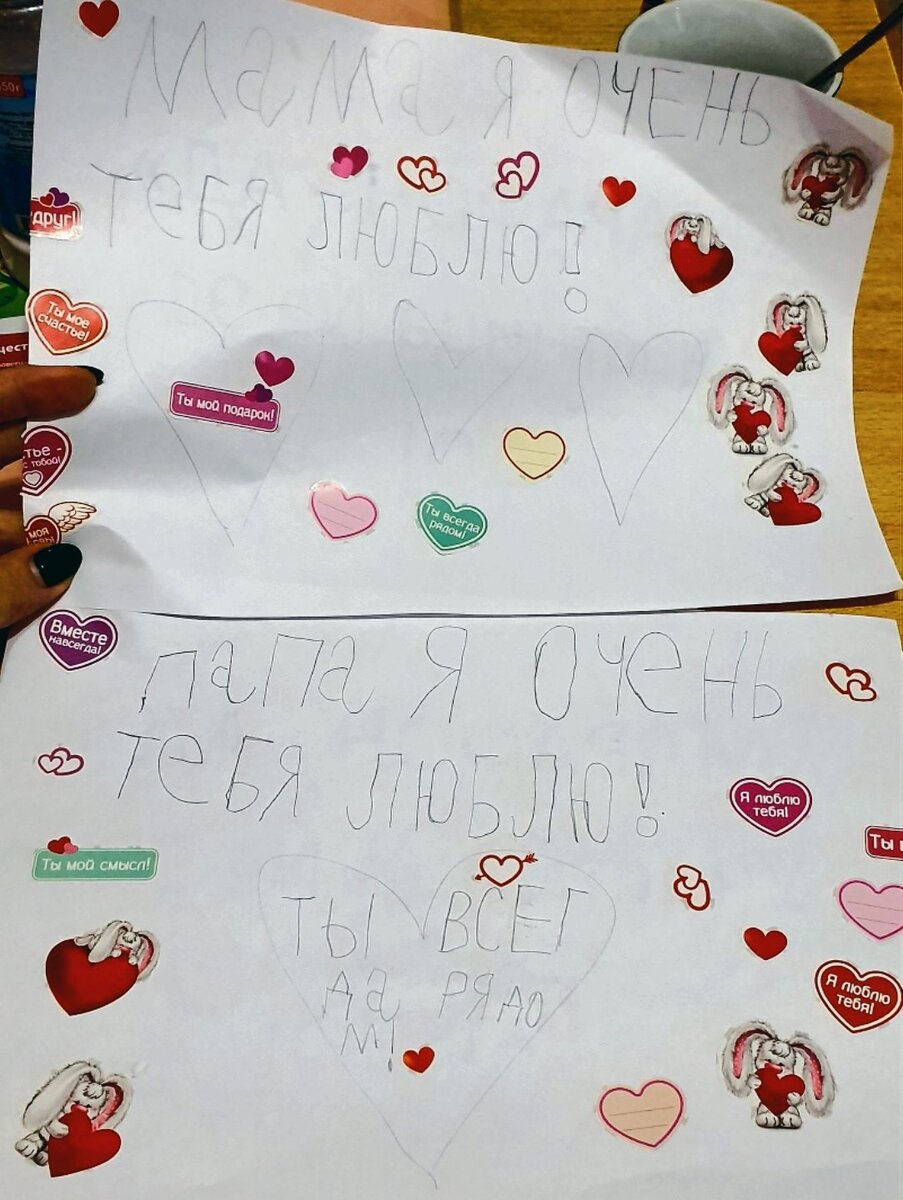 Мама я очень
тебя люблю!
друг!
Ты мое
счастье!
Ты мой подарок!
Ты всегда
рядом!
тье -
с тобой!
моя
Вместе
навсегда!
папа я очень
тебя люблю!
Я люблю
тебя!
Ты мой смысл!
Ты
Ты всег
да рядо
м!
Я люблю
тебя!
50г